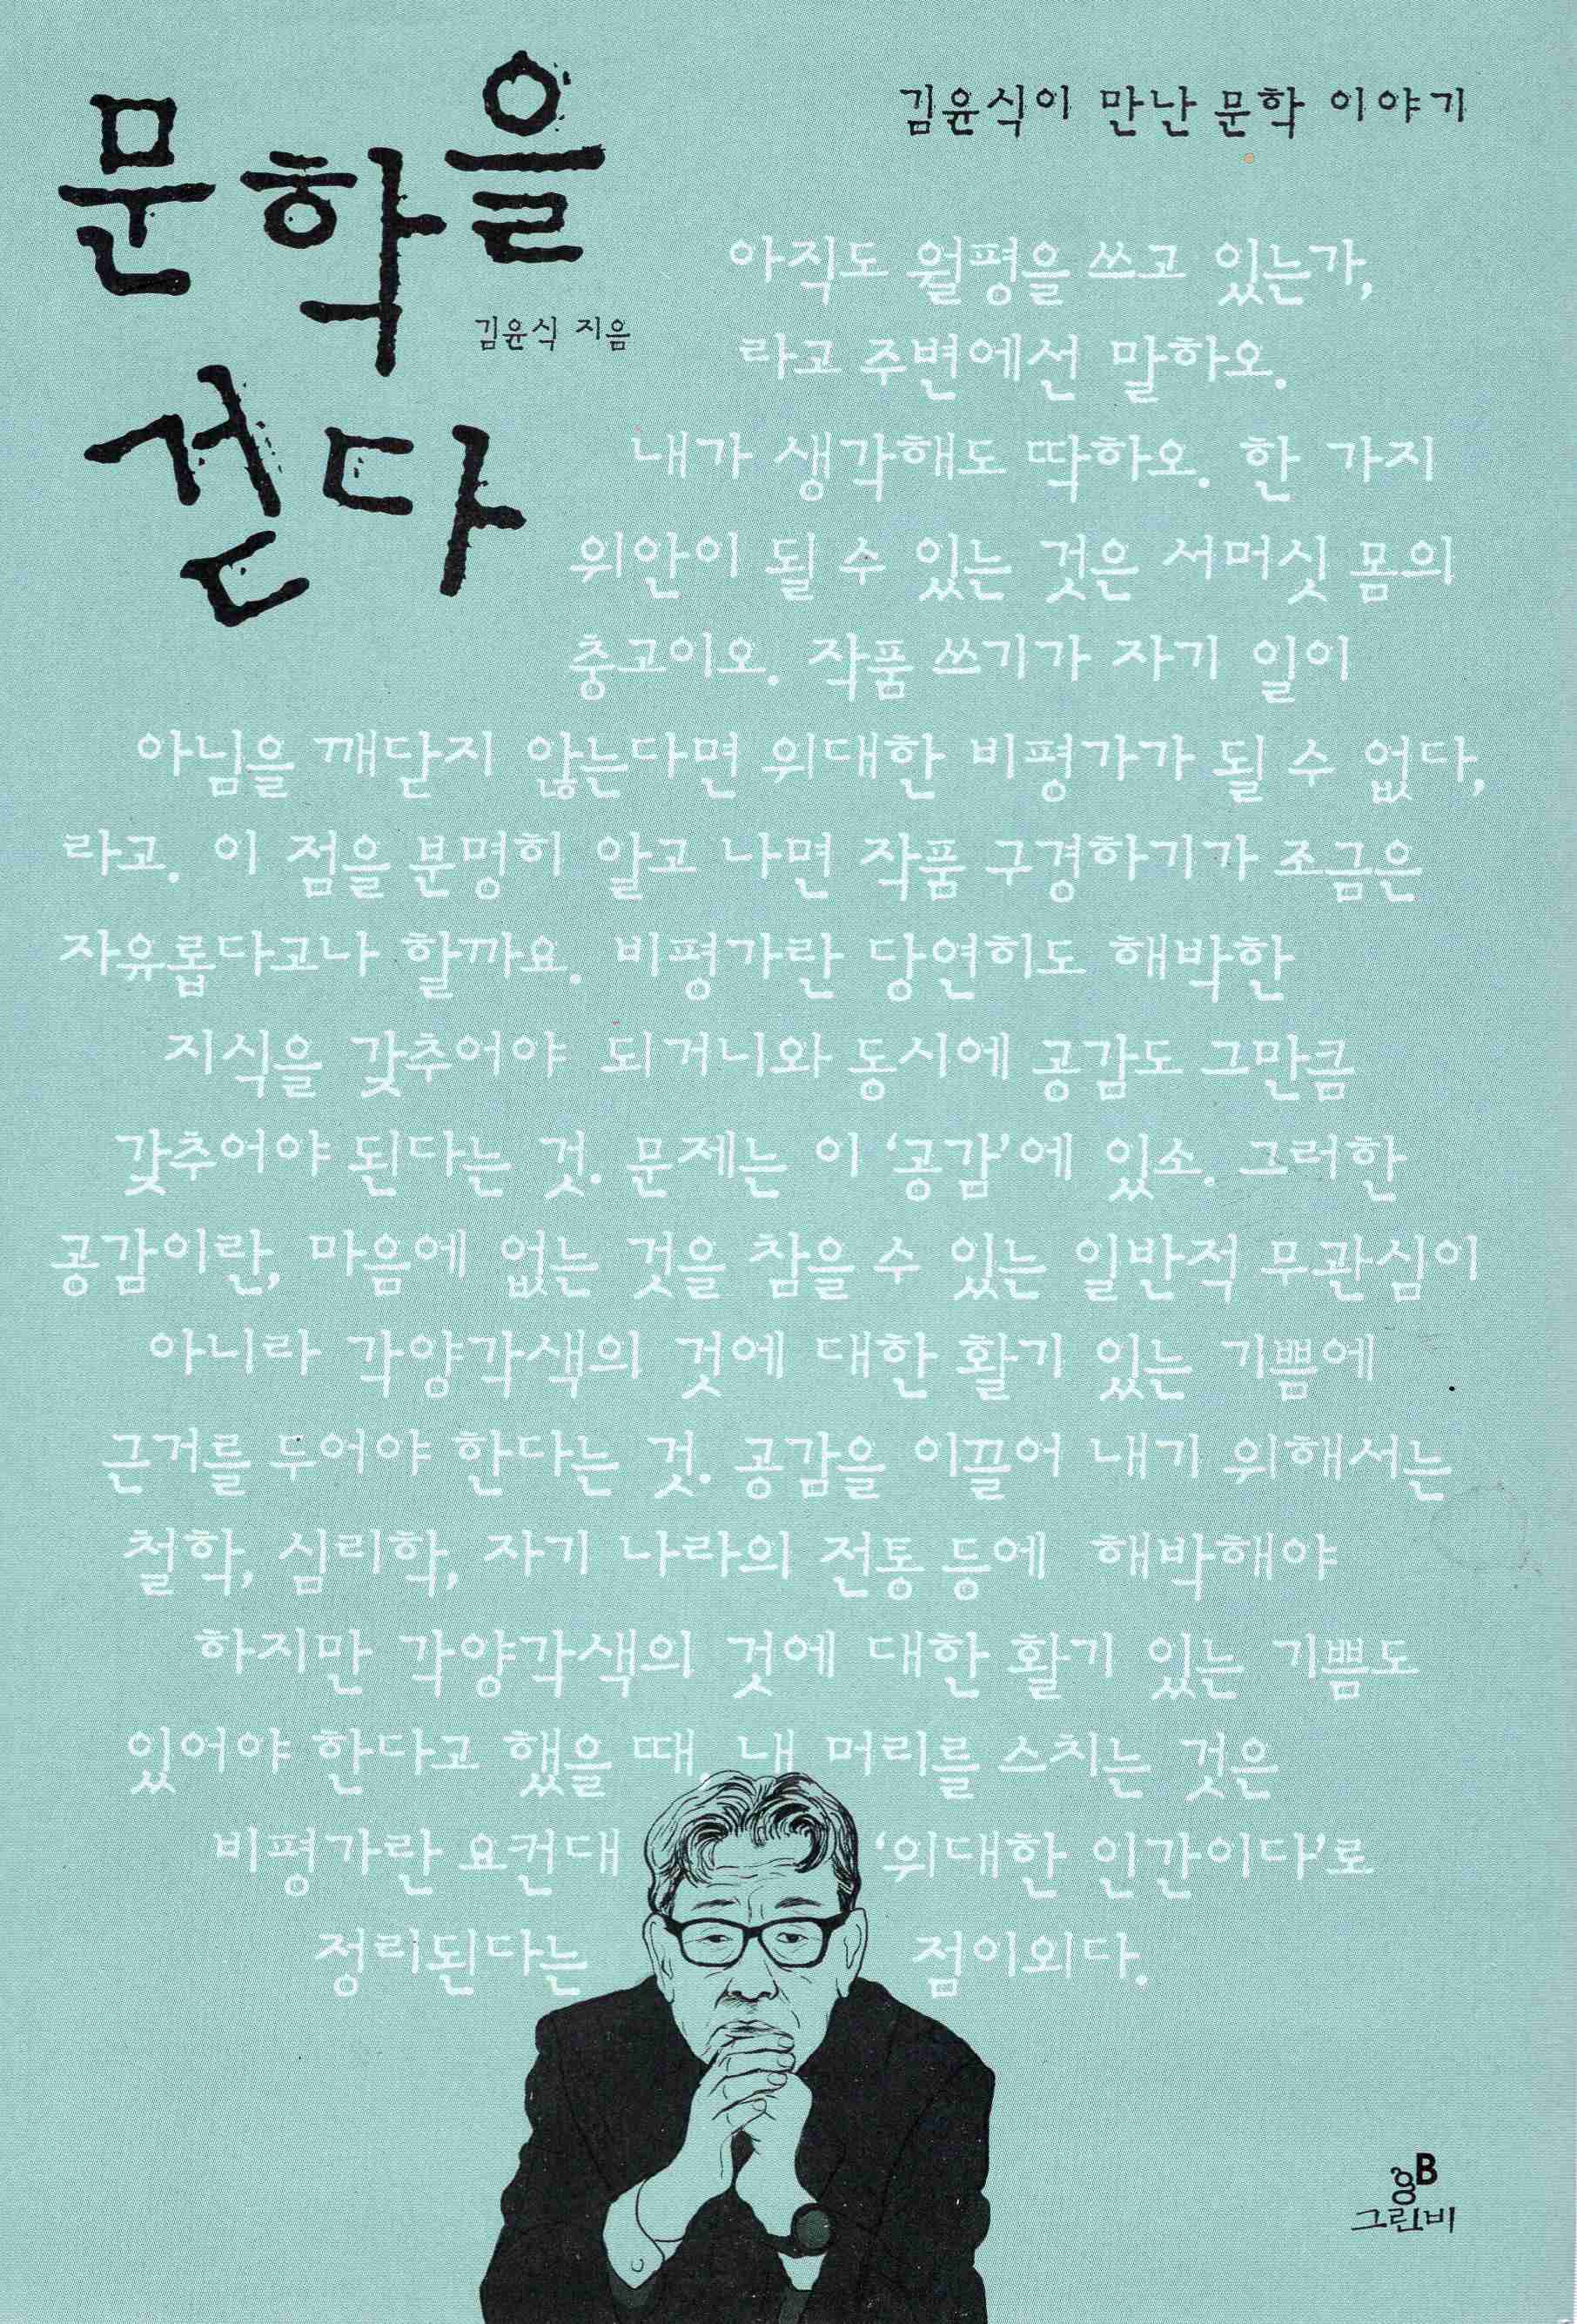 문학을
걷다
김윤식 지음
김윤식이 만난 문학 이야기
아직도 월평을 쓰고 있는가,
라고 주변에선 말하오.
내가 생각해도 딱하오. 한 가지
위안이 될 수 있는 것은 서머싯 몸의
충고이오. 작품 쓰기가 자기 일이
아님을 깨닫지 않는다면 위대한 비평가가 될 수 없다,
라고. 이 점을 분명히 알고 나면 작품 구경하기가 조금은
자유롭다고나 할까요. 비평가란 당연히도 해박한
지식을 갖추어야 되거니와 동시에 공감도 그만큼
갖추어야 된다는 것. 문제는 이 ‘공감’에 있소. 그러한
공감이란, 마음에 없는 것을 참을 수 있는 일반적 무관심이
아니라 각양각색의 것에 대한 활기 있는 기쁨에
근거를 두어야 한다는 것. 공감을 이끌어 내기 위해서는
철학, 심리학, 자기 나라의 전통 등에 해박해야
하지만 각양각색의 것에 대한 활기 있는 기쁨도
있어야 한다고 했을 때, 내 머리를 스치는 것은
비평가란 요컨대 ‘위대한 인간이다’로
정리된다는 점이외다.
gB
그린비